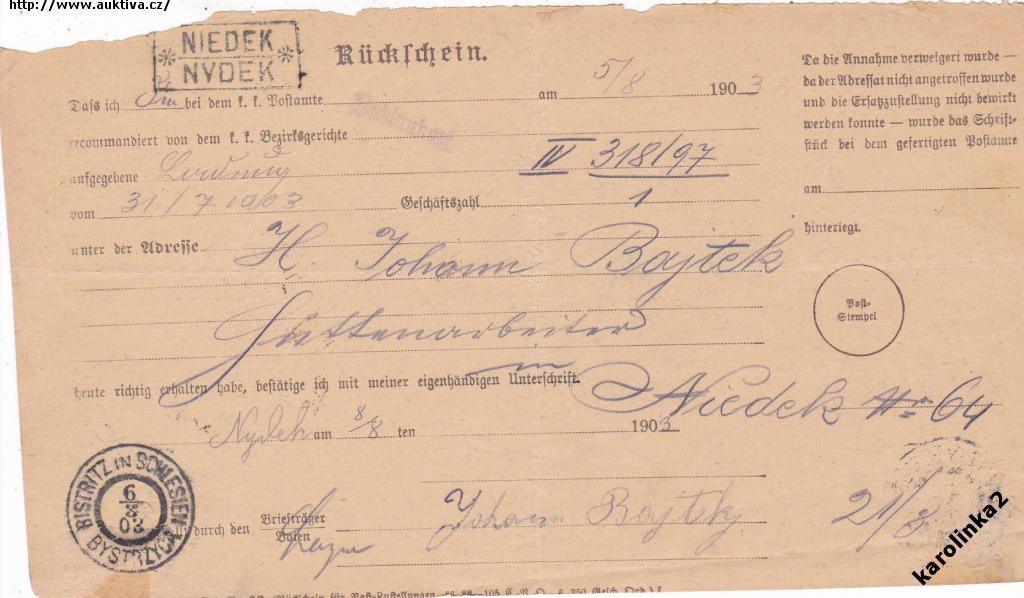 http://www.auktiva.cz/
* NIEDEK *
* NYDEK *
Rückschein.
Daſs ich bei dem k. k. Postamte am 5/8 1903
recommandiert von dem k. k. Bezirksgerichte
aufgegebene IV 318/97
vom 31/7 1903 Geschäftszahl 1
unter der Adresse H. Johann Bajtek
Hüttenarbeiter
in
heute richtig erhalten habe, bestätige ich mit meiner eigenhändigen Unterschrift.
Niedek Nr 64
Nydek am 8/8 ten 1903
BISTRITZ IN SCHLESIEN
6/8 03
BYSTRZYCA
durch den Briefträger
Boten
Johann Bajtek
21/8
Da die Annahme verweigert wurde —
da der Adressat nicht angetroffen wurde
und die Ersatzzustellung nicht bewirkt
werden konnte — wurde das Schrift-
stück bei dem gefertigten Postamte
am
hinterlegt.
Post-
Stempel
karolinka2